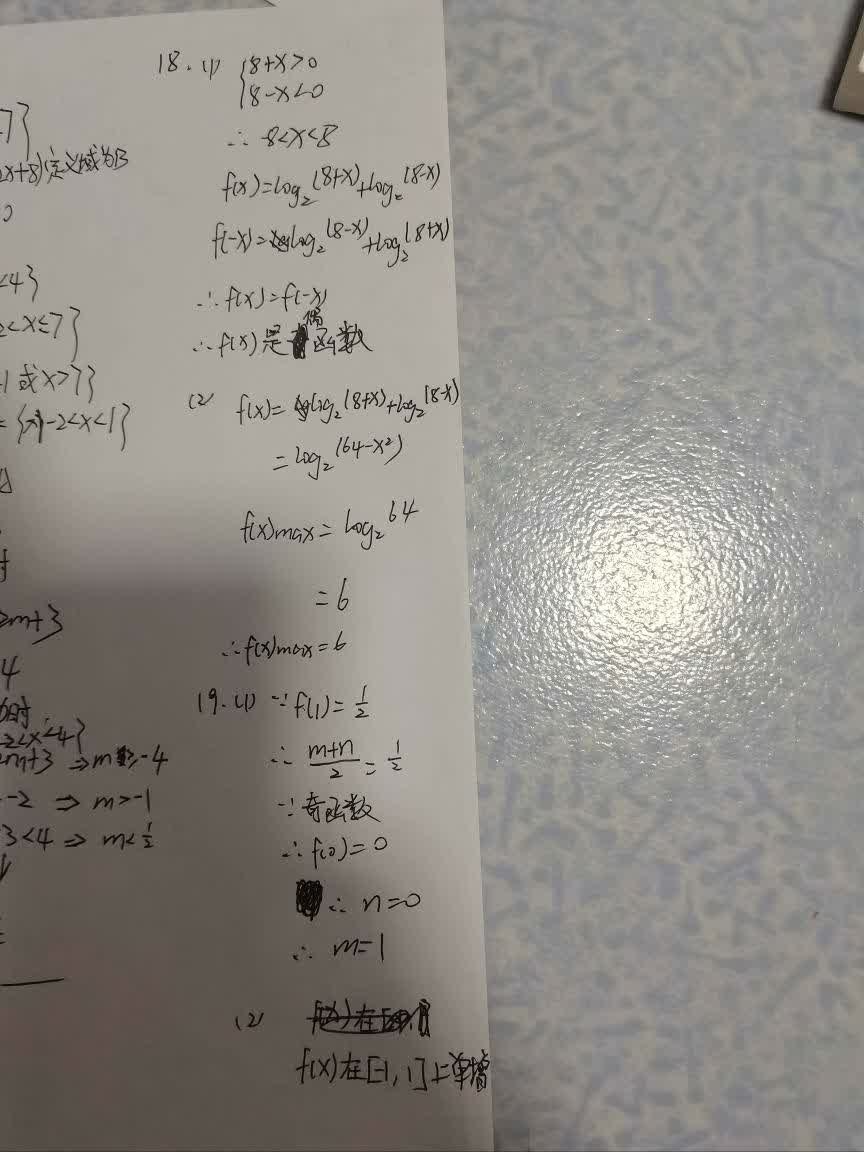 7}
2x+8)定义域为B
<4}
2<x≤7}
-1 或x>7}
={x|-2<x<1}
2m+3
4
时
-2<x<4}
2m+3 ⇒m≥-4
-2 ⇒ m>-1
3<4 ⇒ m<1/2
18.(1) {8+x>0
8-x<0
∴ -8<x<8
f(x)=log₂(8+x)+log₂(8-x)
f(-x)=log₂(8-x)+log₂(8+x)
∴f(x)=f(-x)
∴f(x)是偶函数
(2) f(x)=log₂(8+x)+log₂(8-x)
=log₂(64-x²)
f(x)max=log₂64
=6
∴f(x)max=6
19.(1) ∵f(1)=1/2
∴ (m+n)/2=1/2
∵奇函数
∴f(0)=0
∴ n=0
∴ m=1
(2)
f(x)在[-1,1]上单增